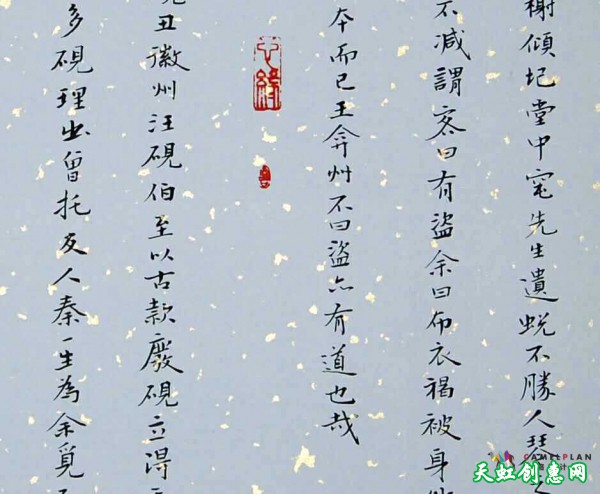 榭傾圮堂中窀先生遺蛻不勝人琴
不減謂客曰有盜余曰布衣褐被身
夲而已王弇州不曰盜亦有道也哉
丑徽州汪硯伯至以古款廢硯立得
多硯理出曾托友人秦一生為余覓
CAMELPLAN
天虹创惠网